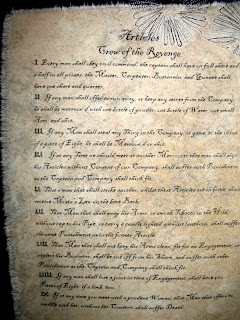 Articles
Crew of the Revenge
I Every man shall obey civil command; the captain shall have one full share and
a half in all prizes; the Master, Carpenter, Boatswain and Gunner shall
have one share and quarter.
II If any man shall offer to run away, or keep any secret from the Company
he shall be marooned with one bottle of powder, one bottle of Water, one small
Arm, and shot.
III If any Man shall steal any Thing in the Company, or game, to the Value
of a piece of Eight, he shall be Marooned or shot.
IIII If at any Time we should meet another
Articles without Consent of our Company, shall suffer such Punishment
as the Captain and Company shall think fit.
V That man that shall strike another, whilst these Articles are in force, shall
receive Moses's Law on the bare Back.
VI That Man that shall snap his Arms, or smoak Tobacco in the Hold,
without cap to his Pipe, or carry a candle lighted without lanthorn, shall suffer
the same Punishment as in the former Article.
VII That Man that shall not keep his Arms clean, fit for an Engagement, or
neglect his Business, shall be cut off from his Share, and suffer such other
Punishment as the Captain and Company shall think fit.
VIII If any man shall lose a joint in time of Engagement, shall have
Pieces of Eight; if a limb
IX If at any time you meet with a prudent Woman, that Man that offers to
meddle with her, without her Consent, shall suffer Death.